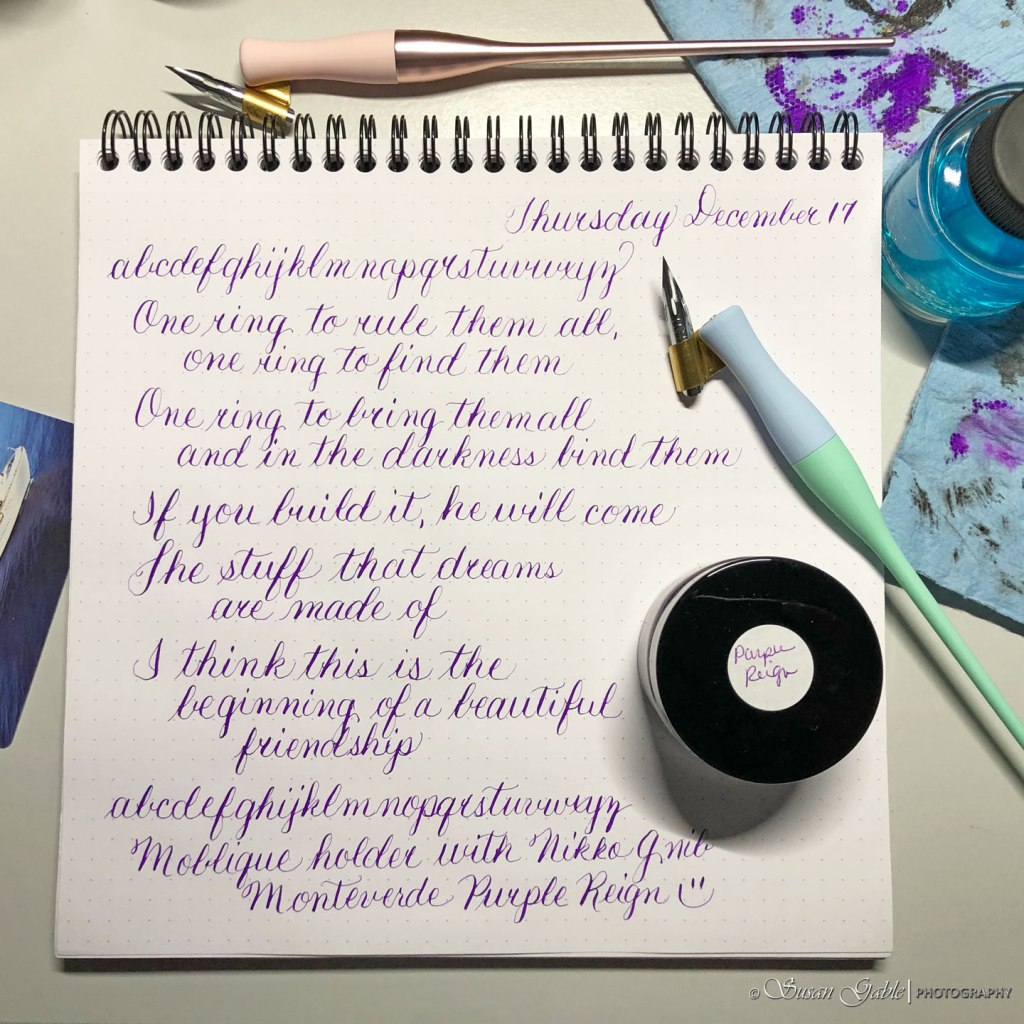 Thursday December 17
abcdefghijklmnopqrstuvwxyz
One ring to rule them all,
one ring to find them
One ring to bring them all
and in the darkness bind them
If you build it, he will come
The stuff that dreams
are made of
I think this is the
beginning of a beautiful
friendship
abcdefghijklmnopqrstuvwxyz
Moblique holder with Nikko G nib
Monteverde Purple Reign
Purple
Reign
© Susan Gable | PHOTOGRAPHY